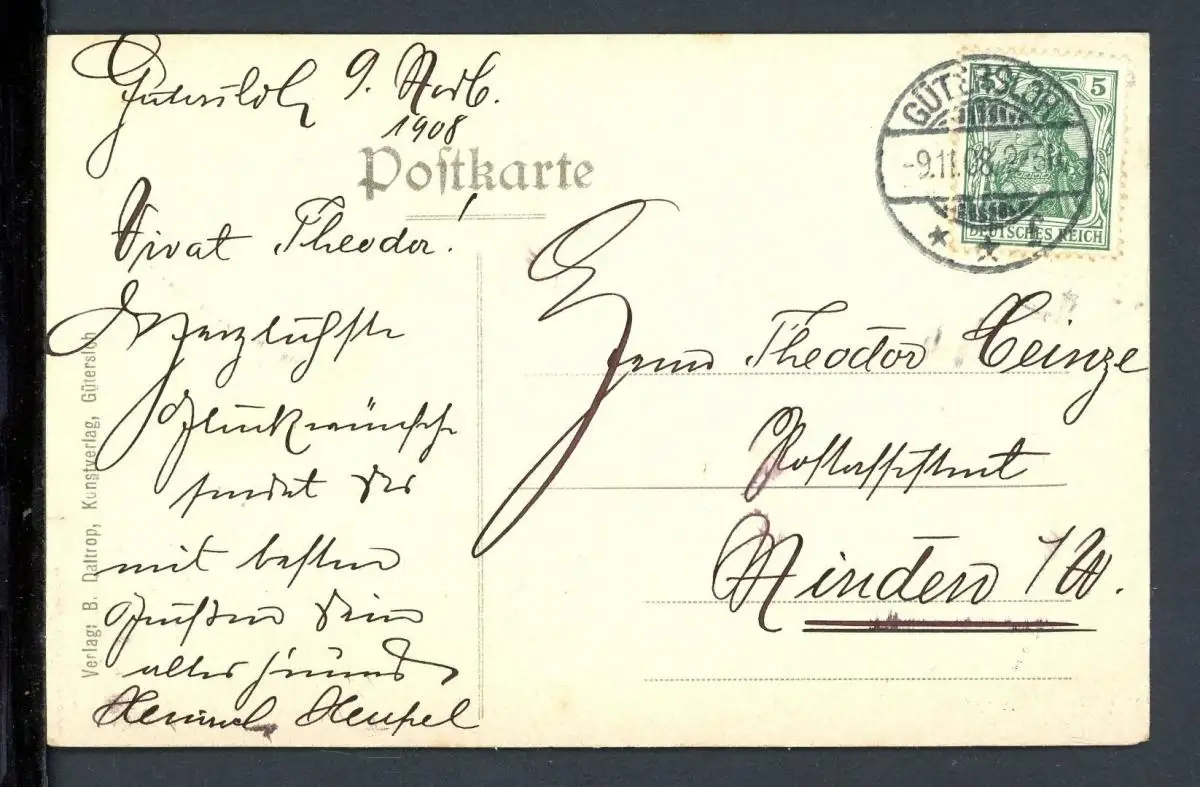 Gütersloh 9. Novb.
1908
Postkarte
Vivat Theodor!
Herzlichste
Glückwünsche
sendet Dir
mit besten
Grüßen Dein
alter Freund
Heinrich Heupel
Herrn Theodor Heinze
Postassistent
Minden i/W.
GÜTERSLOH
-9.11.08
5
DEUTSCHES REICH
Verlag: B. Daltrop, Kunstverlag, Gütersloh